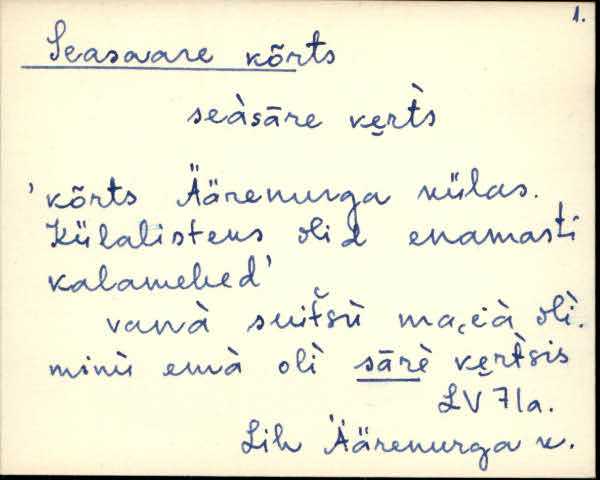 1.
Seasaare kõrts
seàsāre ke̮rt̀s
'kõrts Äärenurga külas.
Külalisteks olid enamasti
kalamehed'
vanà suitšù maià olì.
minù emà olì sārè ke̮rt̀sis
LV 71a.
Lih Äärenurga k.